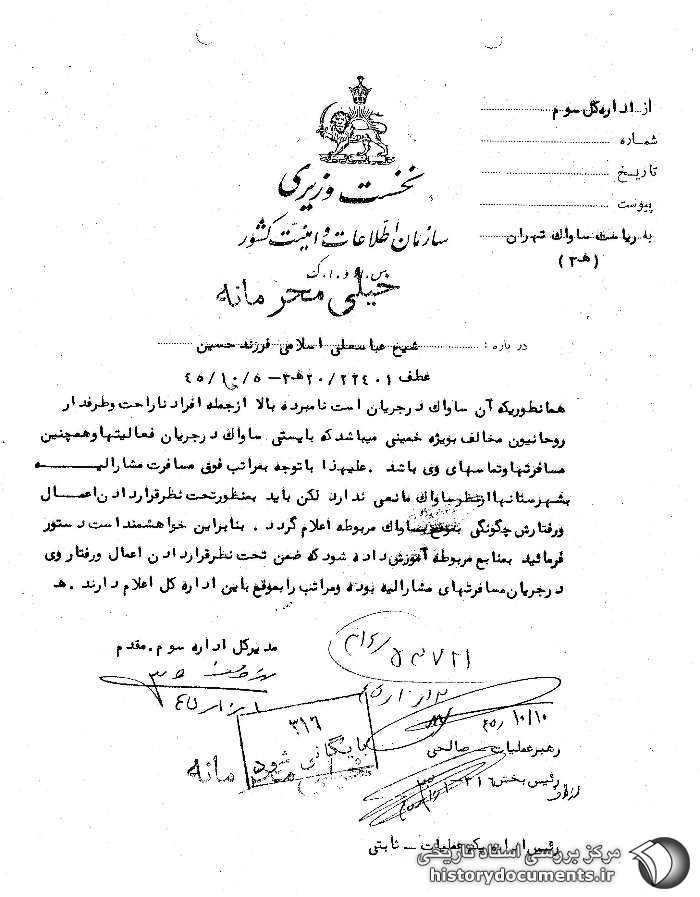 از اداره کل سوم
شماره
تاریخ
پیوست
به ریاست ساواک تهران
(ﻫ۳)
نخست وزیری
سازمان اطلاعات و امنیت کشور
س.ا.و.ا.ک
خیلی محرمانه
درباره: شیخ عباسعلی اسلامی فرزند حسین
عطف ۲۲۴۰۱/۲۰ﻫ۳-۴۵/۱۰/۵
همانطوریکه آن ساواک درجریان است نامبرده بالا ازجمله افراد ناراحت وطرفدار
روحانیون مخالف بویژه خمینی میباشد که بایستی ساواک درجریان فعالیتها وهمچنین
مسافرتها وتماسهای وی باشد. علیهذا با توجه بمراتب فوق مسافرت مشارالیه
بشهرستانها ازنظر ساواک مانعی ندارد لکن باید بمنظور تحت نظر قراردادن اعمال
ورفتارش چگونگی بموقع بساواک مربوطه اعلام گردد. بنابراین خواهشمند است دستور
فرمائید بمنابع مربوطه آموزش داده شود که ضمن تحت نظر قراردادن اعمال ورفتار وی
درجریان مسافرتهای مشارالیه بوده ومراتب را بموقع باین اداره کل اعلام دارند. ﻫ
مدیرکل اداره سوم. مقدم
۳۱۶
بایگانی شود
خیلی محرمانه
۴۵/۱۰/۱۰
رهبر عملیات - صالحی
رئیس بخش ۳۱۶
رئیس اداره یکم عملیات - ثابتی
مرکز بررسی اسناد تاریخی
historydocuments.ir